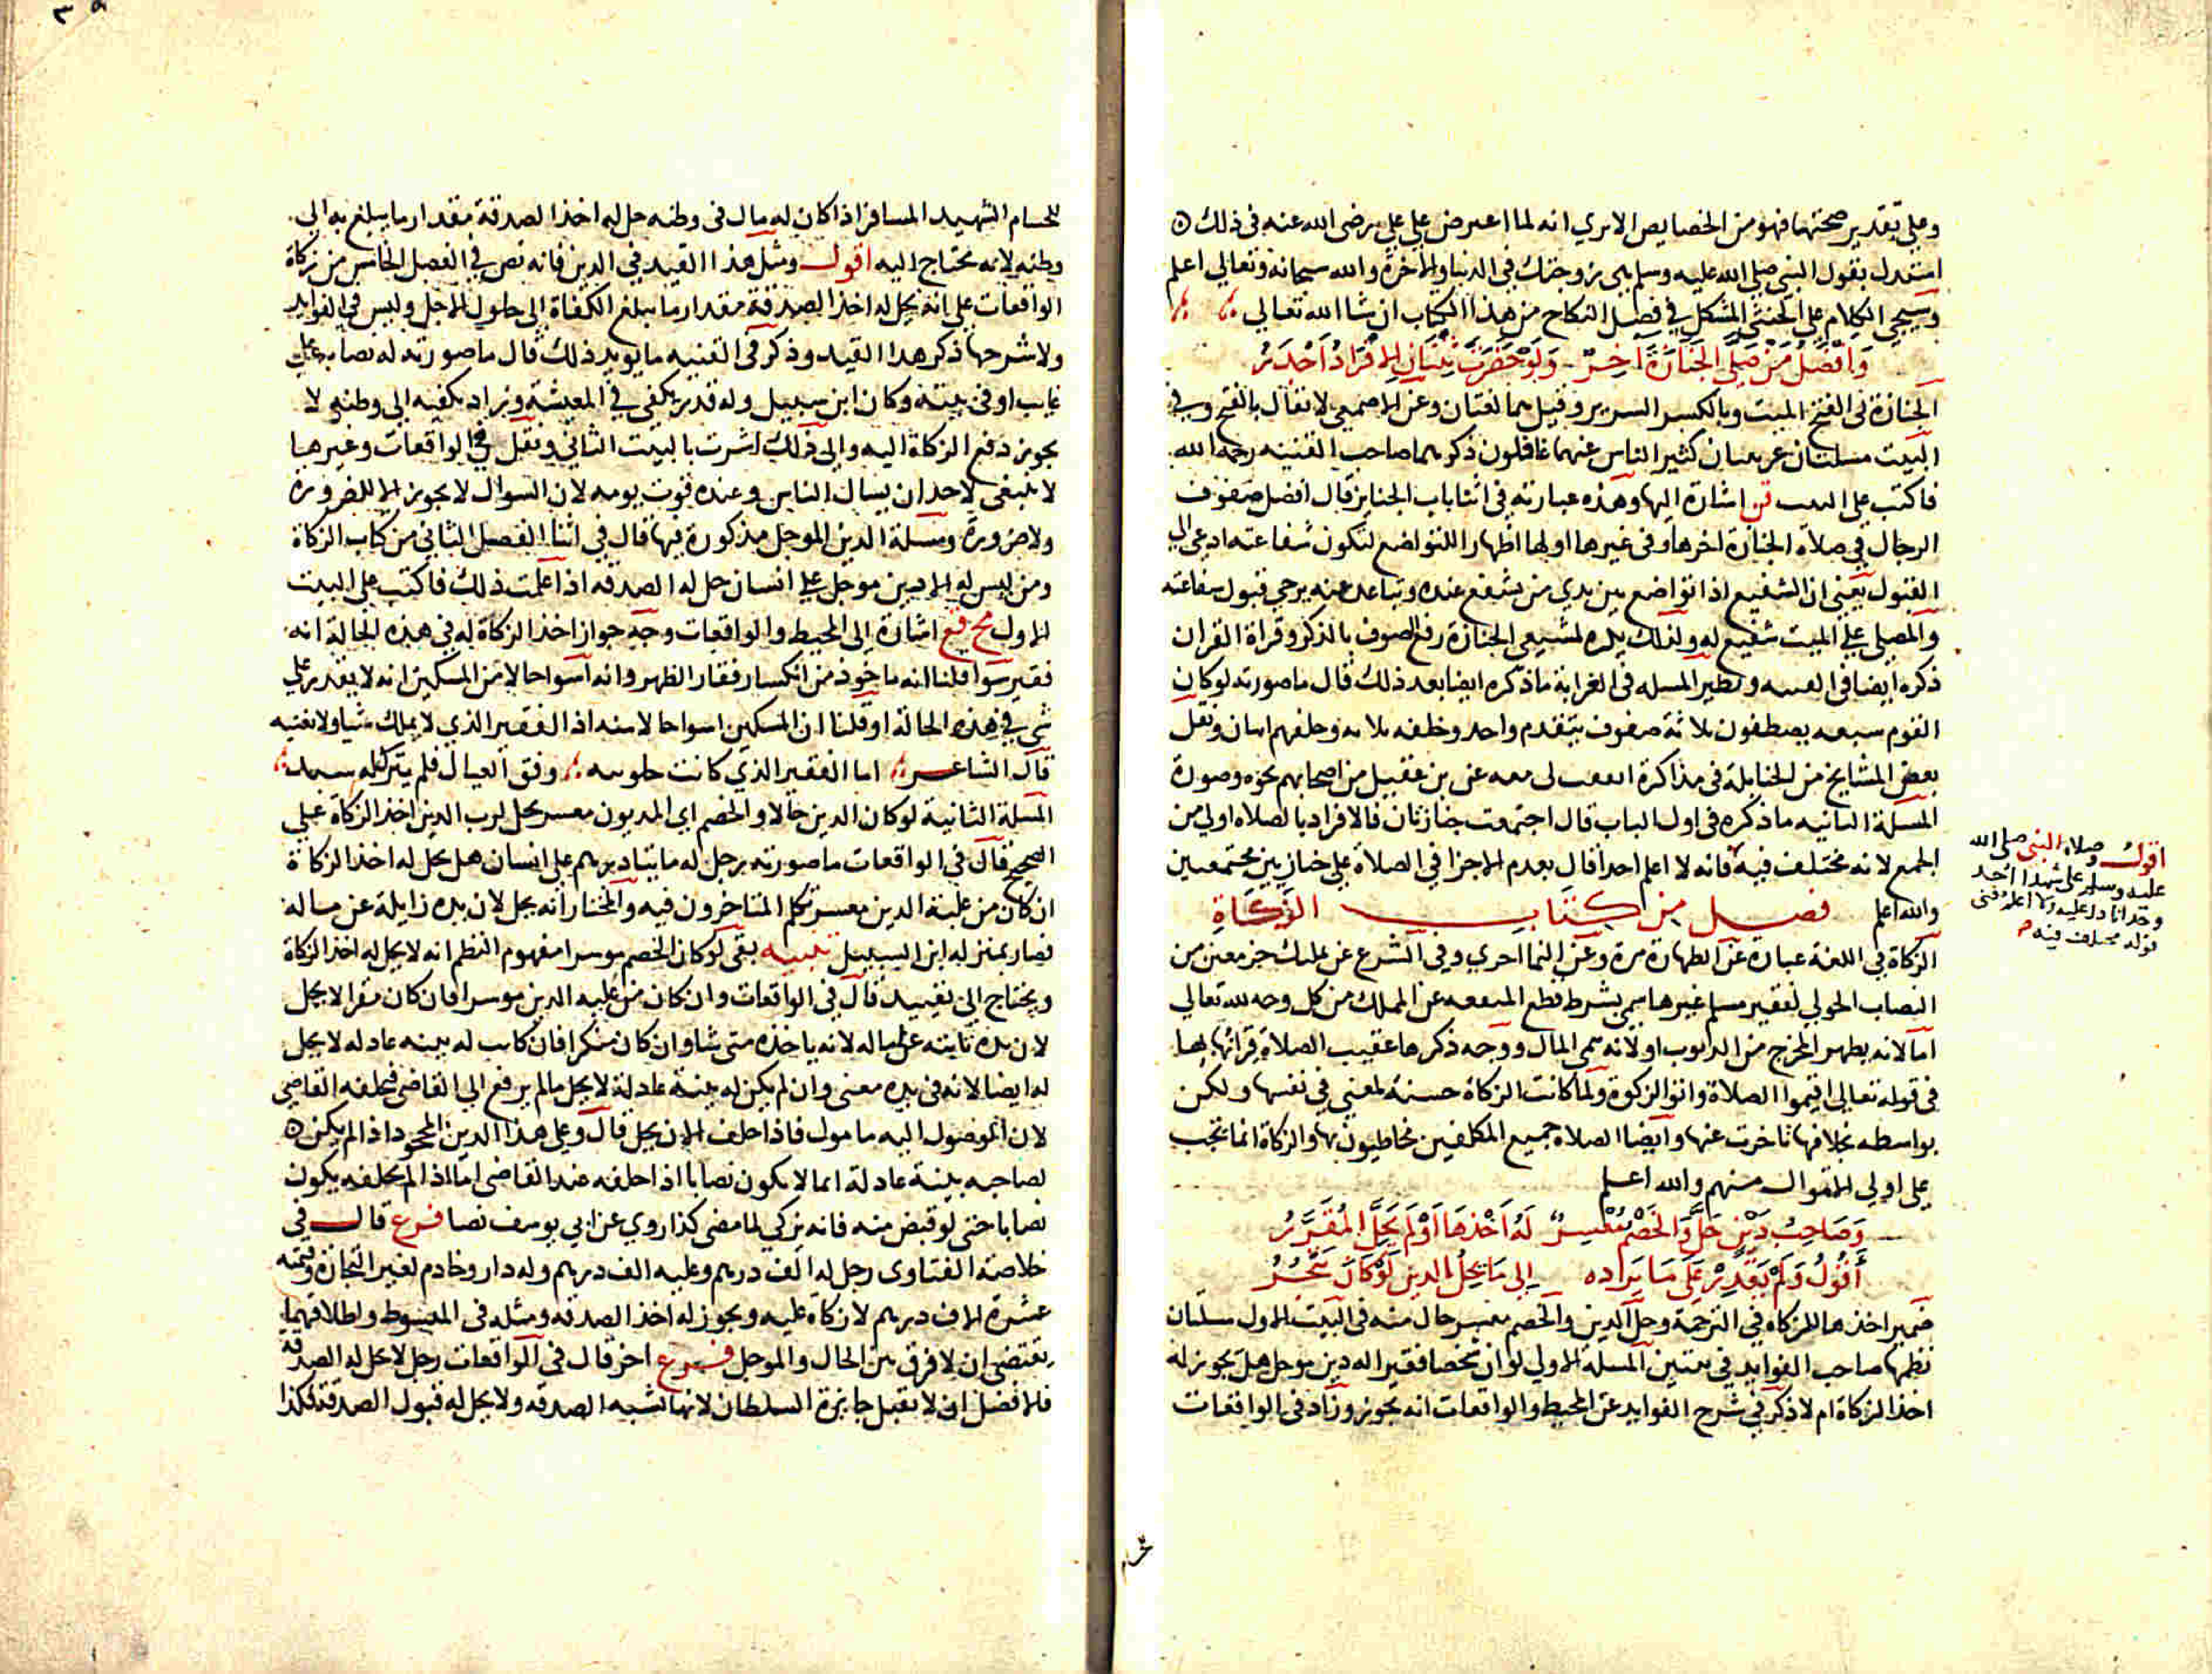 وعلي تقدير صحتها فهو من الخصايص الا يري انه لما اعترض علي علي رضي الله عنه في ذلك
استدل بقول النبي صلي الله عليه وسلم هي زوجتك في الدنيا والاخرة والله سبحانه وتعالي اعلم
وسيجي الكلام علي الخنثي المشكل في فصل النكاح من هذا الكتاب ان شا الله تعالي
وَافْضَلُ مَنْ صَلَّي الجَنَازَةَ اخِرٌ وَلَوْ حَضَرَتْ ثِنْتَانِ الافْرَادُ اَجْدَرُ
الجنازة في الفتح الميت وبالكسر السرير وقيل هما لغتان وعن الاصمعي لا تقال بالفتح وفي
البيت مسلتان غريبتان كثير الناس عنهما غافلون ذكرهما صاحب القنية رحمه الله
فاكتب علي البيت قن اشارة اليها وهذه عبارته في اثنا باب الجنايز قال افضل صفوف
الرجال في صلاة الجنازة اخرها وفي غيرها اولها اظهار اللتواضع لتكون شفاعته ادعي الي
القبول يعني ان الشفيع اذا تواضع بين يدي من يشفع عنده وتباعد عنه يرجي قبول شفاعته
والمصلي علي الميت شفيع له ولذلك يكره لمشيعي الجنازة رفع الصوت بالذكر وقراة القران
ذكره ايضا في القنيه ونظير المسله في الغرابة ما ذكره ايضا بعد ذلك قال ما صورته لو كان
القوم سبعه يصطفون ثلاثة صفوف يتقدم واحد وخلفه ثلاثه وخلفهم اثنان ونقل
بعض المشايخ من الحنابلة في مذاكرة لي معه عن بن عقيل من اصحابهم نحوه وصورة
المسلة الثانيه ما ذكره في اول الباب قال اجتمعت جنازتان فالافراد بالصلاه اولي من
الجمع لانه مختلف فيه فانه لا اعلم احدا قال بعدم الاجزا في الصلاة علي جنازتين مجتمعتين
والله اعلم فصل من كتاب الزكاة
الزكاة في اللغة عبارة عن الطهارة مرة وعن النما اخري وفي الشرع عن تمليك جز معين من
النصاب الحولي لفقير مسلم غير هاشمي بشرط قطع المنفعه عن المملك من كل وجه لله تعالي
اما لانه يطهر المخرج من الذنوب او لانه ينمي المال ووجه ذكرها عقيب الصلاة قرانها بها
في قوله تعالي اقيموا الصلاة واتوا الزكوة ولما كانت الزكاة حسنة لمعني في نفسها ولكن
بواسطه بخلافها تاخرت عنها وايضا الصلاة جميع المكلفين مخاطبون بها والزكاة انما تجب
علي اولي الاموال منهم والله اعلم
وَصَاحِبُ دَيْنٍ حَلَّ وَالخَصْمُ مُعْسِرٌ لَهُ اَخْذهَا اَوْ لَمْ يَحِلَّ المُقَرَّرُ
أَقُولُ وَلَمْ يَقْدِرْ عَلَي مَا يَرَاده الي مَا يحِلُ الدين لَوْ كَانَ يَتْجُرُ
ضمير اخذها للزكاة في الترجمة وحل الدين والخصم معسر حال منه في البيت الاول مسلتان
نظمها صاحب الفوايد في بيتين المسلة الاولي لو ان شخصا فقيرا له دين موجل هل يجوز له
اخذ الزكاة ام لا ذكر في شرح الفوايد عن المحيط والواقعات انه يجوز وزاد في الواقعات
اقول وصلاة النبي صلي الله
عليه وسلم علي شهدا احد
وحدانا دل عليه
قوله مختلف فيه
للحسام الشهيد المسافر اذا كان له مال في وطنه حل له اخذ الصدقة مقدار ما يبلغ به الي
وطنه لانه محتاج اليه اقول ومثل هذا القيد في الدين فانه نص في الفصل الخامس من زكاة
الواقعات علي انه يحل له اخذ الصدقة مقدار ما يبلغ الكفاة الي حلول الاجل وليس في الفوايد
ولا شرحها ذكر هذا القيد وذكر في القنيه ما يويد ذلك قال ما صورته له نصاب علي
غايب او في بيته وكان ابن سبيل وله قدر يكفي في المعيشة وزاد يكفيه الي وطنه لا
يجوز دفع الزكاة اليه والي ذلك اشرت بالبيت الثاني ونقل في الواقعات وغيرها
لا ينبغي لاحد ان يسال الناس وعنده قوت يومه لان السوال لا يجوز الا للضرورة
ولا ضرورة ومسلة الدين الموجل مذكورة فيها قال في اثنا الفصل الثاني من كتاب الزكاة
ومن ليس له الا دين موجل علي انسان حل له الصدقه اذا علمت ذلك فاكتب علي البيت
الاول مح قع اشارة الي المحيط والواقعات وجه جواز اخذ الزكاة له في هذه الحالة انه
فقير سوا قلنا انه ماخوذ من انكسار فقار الظهر وانه اسوا حالا من المسكين انه لا يقدر علي
شي في هذه الحالة او قلنا ان المسكين اسوا حالا منه اذ الفقير الذي لا يملك شيا ولا نغنيه
قال الشاعر اما الفقير الذي كانت حلوبته وفق العيال فلم يترك له سبد
المسلة الثانية لو كان الدين حالا والخصم اي المديون معسر يحل لرب الدين اخذ الزكاة علي
الصحيح قال في الواقعات ما صورته رجل له مايتا درهم علي انسان هل يحل له اخذ الزكاة
ان كان من عليه الدين معسر تكلم المتاخرون فيه والمختار انه يحل لان يده زايلة عن ماله
فصار بمنزله ابن السبيل تنبيه بقي لو كان الخصم موسرا مفهوم النظم انه لا يحل له اخذ الزكاة
ويحتاج الي تقييد قال في الواقعات وان كان من عليه الدين موسرا فان كان مقرا لا يحل
لان يده ثابته علي ماله لانه ياخذه متي شا وان كان منكرا فان كانت له بينه عادله لا يحل
له ايضا لانه في يده معني وان لم يكن له بينة عادلة لا يحل ما لم يرفع الي القاضي فيحلفه القاضي
لان الوصول اليه مامول فاذا حلف الان يحل قال وعلي هذا الدين المجحود اذا لم يكن
لصاحبه بينة عادلة انما لا يكون نصابا اذا حلفه عند القاضي اما اذا لم يحلفه يكون
نصابا حتي لو قبض منه فانه يزكي لما مضي كذا روي عن ابي يوسف نصا فرع قال في
خلاصة الفتاوي رجل له الف درهم وعليه الف درهم وله دار وخادم لغير التجارة وقيمته
عشرة الاف درهم لا زكاة عليه ويجوز له اخذ الصدقه ومثله في المبسوط واطلاقهما
يقتضي ان لا فرق بين الحال والموجل فرع اخر قال في الواقعات رجل لا تحل له الصدقة
فالافضل ان لا تقبل جايزة السلطان لانها تشبه الصدقه ولا يحل له قبول الصدقة فكذا